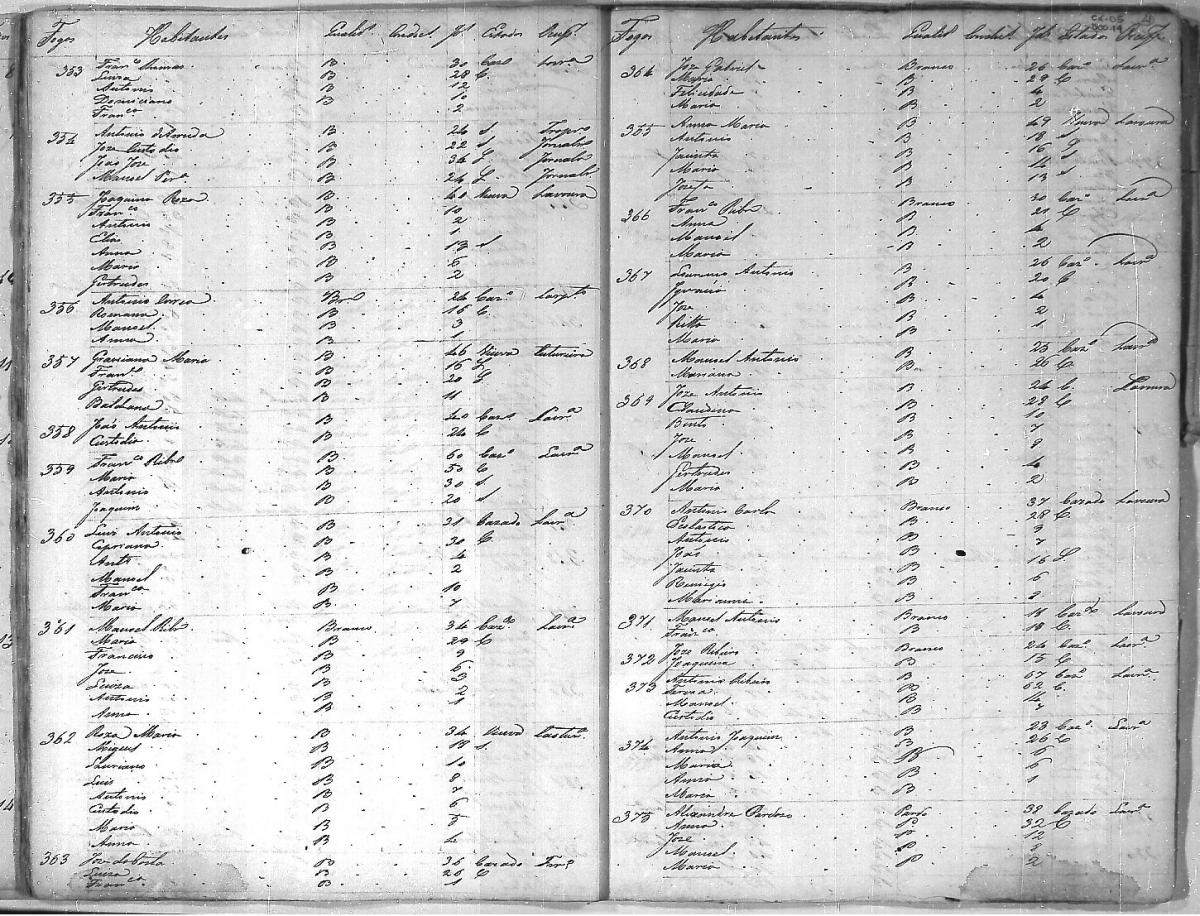 Fogos Habitantes Qualid.e Condiçl Id.e Estados Ocup.m
353 Fran.co Dumas B 30 Caz.o Lavr.a
Luiza B 28 C.
Antonio B 12
Domiciano B
Fran.co 2
354 Antonio B 24 S Tropr.o
Joze Custodio B 22 S Jornal.o
João Joze B 34 S Jornal.o
Manoel Per.a B 24 S Jornal.o
355 Joaquina Roza B Viuva Lavoura
Fran.co B 10
Antonio B 2
Elias B 1
Anna B 13 S
Maria B 5
Gertrudes B 2
356 Antonio Correa Br.o 24 Caz.o Carpt.o
Romana B 15 C.
Manoel B 3
Anna B 1
357 Graciana Maria B 46 Viuva Custureira
Fran.co B 16 S
Gertrudes B 20 S
Balthazar B 11
358 João Antonio B 40 Caz.o Lavr.a
Custodia B 24 C
359 Fran.co Ribr.o B 60 Caz.o Lavr.a
Maria B 50 C
Antonio B 30 S
Joaquim B 20 S
360 Luis Antonio B 31 Cazado Lavr.a
Cipriana B 30 C.
Ant.o B 4
Manoel B 2
Fran.co B 10
Maria B 7
361 Manoel Ribr.o Branco 34 Caz.do Lavr.a
Maria B 29 C
Francisco B 9
Joze B 5
Luiza B 3
Antonio B 2
Anna B 1
362 Roza Maria B 34 Viuva Custur.a
Miguel B S.
Lauriano B 10
Luis B 8
Antonio B 7
Custodio B 6
Maria B 5
Anna B 4
363 Joze da Costa B 36 Cazado
Luiza B 28 C
Fran.co B 1
Fogos Habitantes Qualid.e Condiçl Id.e Estados Ocup.m
364 Joze Gabriel Branco 26 Caz.o Lavr.a
Maria B 29 C
Felicidade B 4
Maria B 2
365 Anna Maria B 49 Viuva Lavoura
Antonio B 18 S
Jacinta B 16 S
Maria B 14
Jozefa B 13 S
366 Fran.co Ribr.o Branco 30 Caz.o Lavr.a
Anna B 21 C
Manoel B 4
Maria B 2
367 Antonio B 26 Caz.o Lavr.a
Ignacia B 20 C
Joze B 4
Ritta B 2
Maria B 1
368 Manoel Antonio B 25 Caz.o Lavr.a
Mariana B 26 C.
369 Joze Antonio B 24 C. Lavoura
Claudina B 28 C
Bento B 10
Joze B 7
Manoel B 9
Gertrudes B 4
Maria B 2
370 Antonio Carlos Branco 37 Cazado Lavoura
Scolastica B 28 C
Antonio B 9
João B 7
Jacinta B 16 S.
Remigio B 6
Marianna B 2
371 Manoel Antonio Branco 18 Caz.do Lavoura
Fran.ca B 18 C.
372 Joze Ribeiro Branco 24 Caz.o Lavr.a
Joaquina B 15 C
373 Antonio Ribeiro B 67 Caz.o Lavr.a
Tereza B 62 C.
Manoel B 14
Custodio B 7
374 Antonio Joaquim B 23 Caz.o Lavr.a
Anna B 26 C
Maria B 5
Anna B 6
Maria B 1
375 Alexandre Cardozo Pardo 39 Cazado Lavr.a
Anna P 32 C
Joze P 12
Manoel P 8
Maria P 2